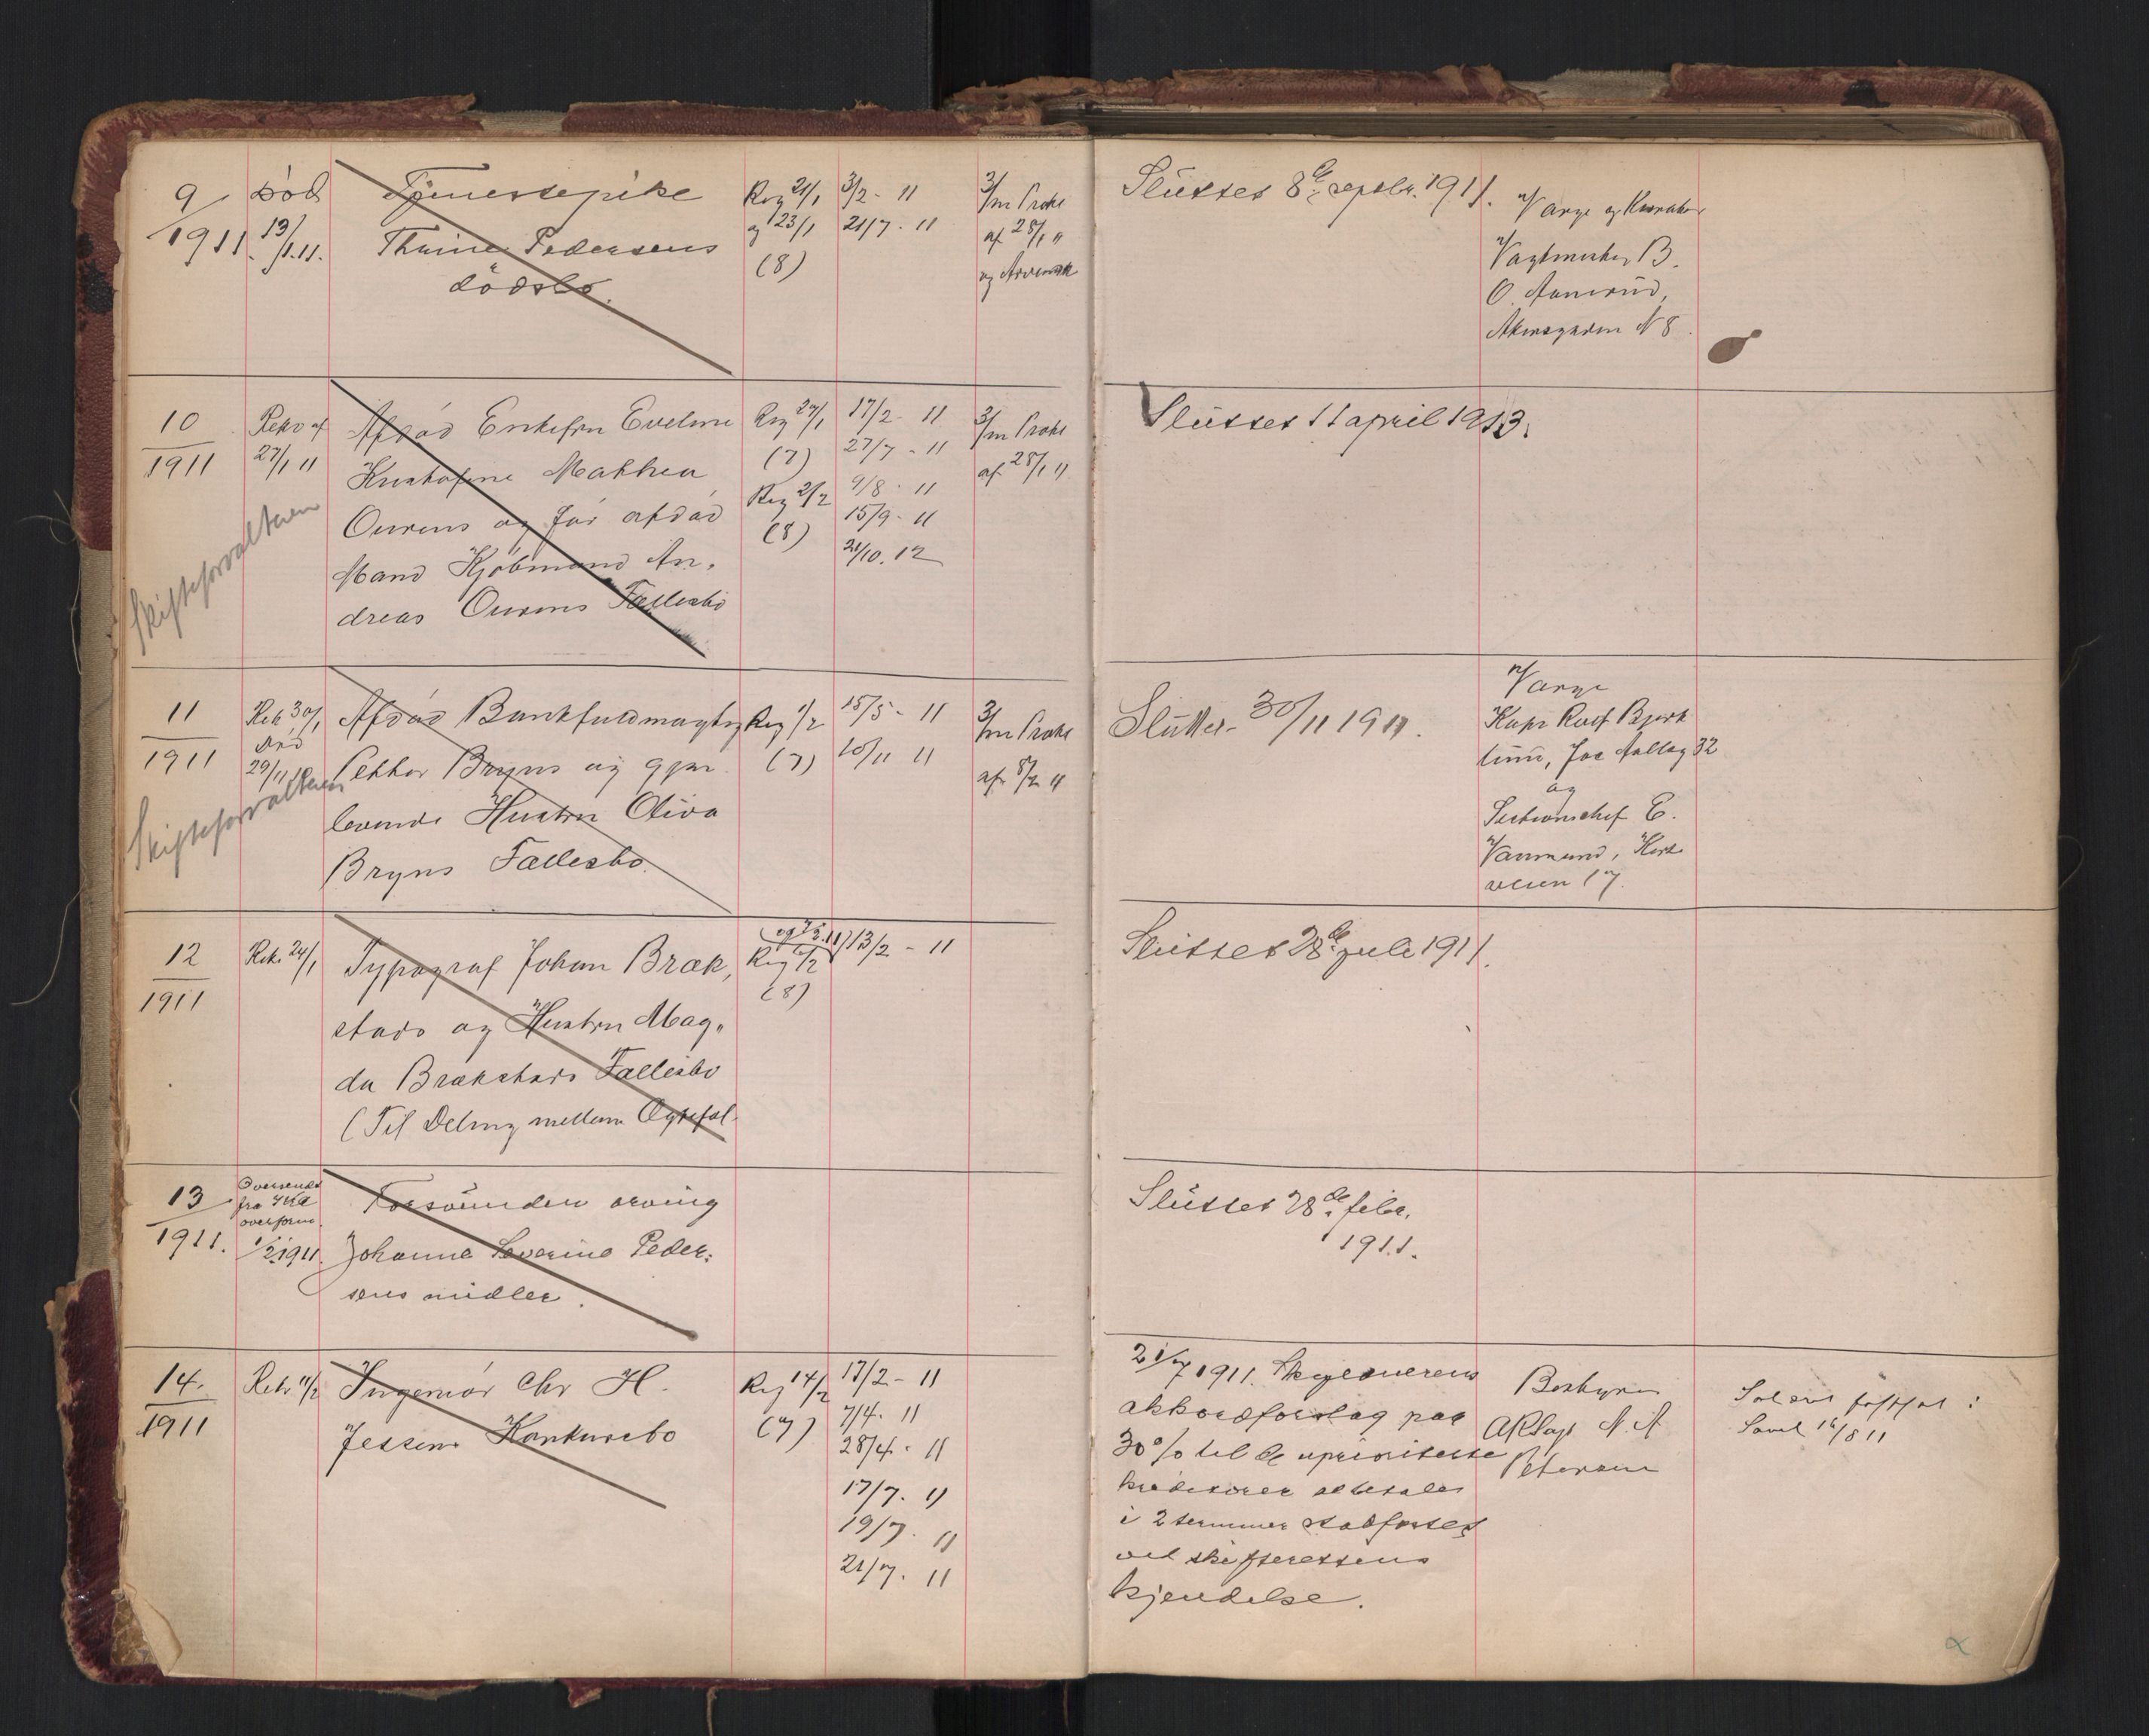 9/1911.
Død
13/1.11.
Tjenestepike
Thrine Pedersens
dødsbo.
Reg 21/1
og 23/1
(8)
3/2 - 11
21/7 - 11
3/m Prokl
af 28/1 11
Sluttet 8de septbr. 1911.
Værge og
Vagtmester B.
O.
Akersgaden N 8.
10
1911
Rekv af
27/1 11
Afdød Enkefru Eveline
Mathea
Ourens og før afdød
Mand Kjøbmand An-
dreas Ourens Fællesbo
Reg 27/1
(7)
Reg 2/2
(8)
17/2 - 11
27/7 - 11
9/8 - 11
15/9 - 11
21/10. 12
3/m Prokl
af 28/1 11
Skifteforvalteren
Sluttet 11 april 1913.
11
1911
Rek 30/1
Død
Afdød Bankfuldmægtig
Petter Bryns og gjen-
levende Hustru Oliva
Bryns Fællesbo.
Reg 1/2
(7)
15/5 - 11
10/11 11
3/m Prokl
af 8/2 11
Skifteforvalteren
Sluttet 30/11 1911.
Værge
Kapt Rolf
32
og
E.
veien 17.
12
1911
Rek. 24/1
Typograf Johan Bræk-
stads og Hustru Mag-
da Brækstads Fællesbo
(Til Deling mellem Ægtefol-
Reg
(8)
13/2 - 11
Sluttet 28de juli 1911.
13
1911.
Oversendt
fra
overform.
1/2 1911.
Forsvunden arving
Johanne Severine Peder-
sens midler.
Sluttet 28de febr.
1911.
14.
1911
Rekv 11/2
Ingeniør Chr H.
Jessens Konkursbo
Reg 14/2
(7)
17/2 - 11
7/4. 11
28/4. 11
17/7. 11
19/7. 11
21/7. 11
21/7 1911.
akkordforslag paa
30% til de uprioriterte
kreditorer at betales
i 2 terminer stadfæstet
ved skifterettens
kjendelse.
Bostyrer
N. A.
Petersen